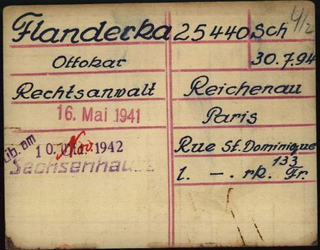 Flanderka 25440 Sch 4/2
Ottokar 30.7.94
Rechtsanwalt Reichenau
16. Mai 1941 Paris
Rue St. Dominique
am 10. 1942 133
l. -. rk. Fr.